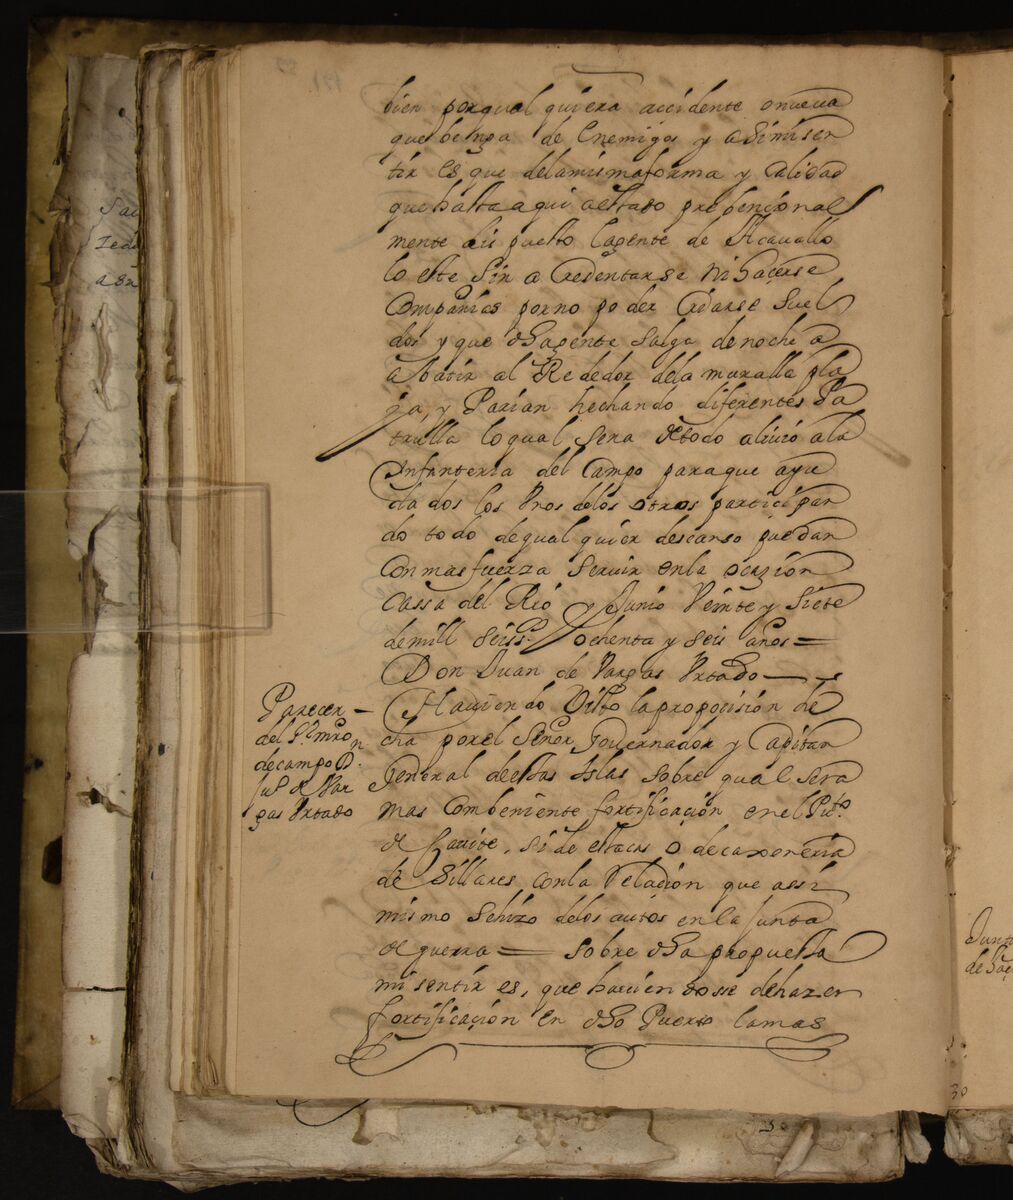 bien por qual quiera accidente o nueva
que benga de Enemigos y asimi sen
tir es que delamismaforma y calidad
que hasta aqui a estado prebencional
mente dispuesto lagente de Acavallo
lo este sin acresentarse ni haçerse
Compañias por no poder Criarse suel
dos y que dha gente salga de noche a
abatir al Rededor dela muralla pla
ya, y Parian hechando diferentes Pa
trulla loqual sera de todo alivio ala
Infanteria del Campo paraque ayu
dados los Unos delos otros participan
do todo de qual quier descanso puedan
con mas fuerza servir enla ocazion
Cassa del Rio y Junio Veinte y siete
demill seiss.s ochenta y seis años =
Don Juan de Vargas Urtado
Parecer
del S.r mro
decampo D.n
Ju.o de Var
gas Urtado
Haviendo Visto la proposision he
cha por el Señor Governador y Capitan
General destas Islas sobre qual sera
mas Combeniente fortificaçion en el Pu.to
de Cavite, si de estacas o de
de Sillares, con la Relacion que assi
mismo se hizo delos autos en la junta
de guerra = sobre dha propuesta
mi sentir es, que haviendosse dehazer
fortificaçion en dho Puerto lamas